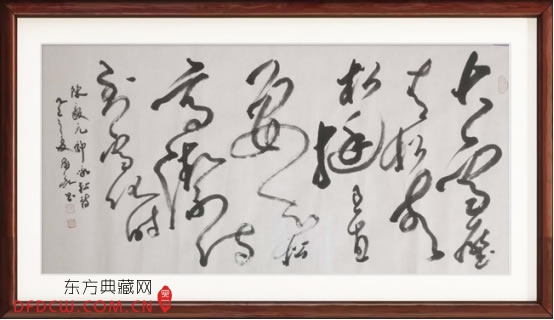 大雪壓
青松青
松挺且直
要知松
高潔待
到雪化時
陳毅元帥詩
东方典藏网
DFDCW.COM.CN